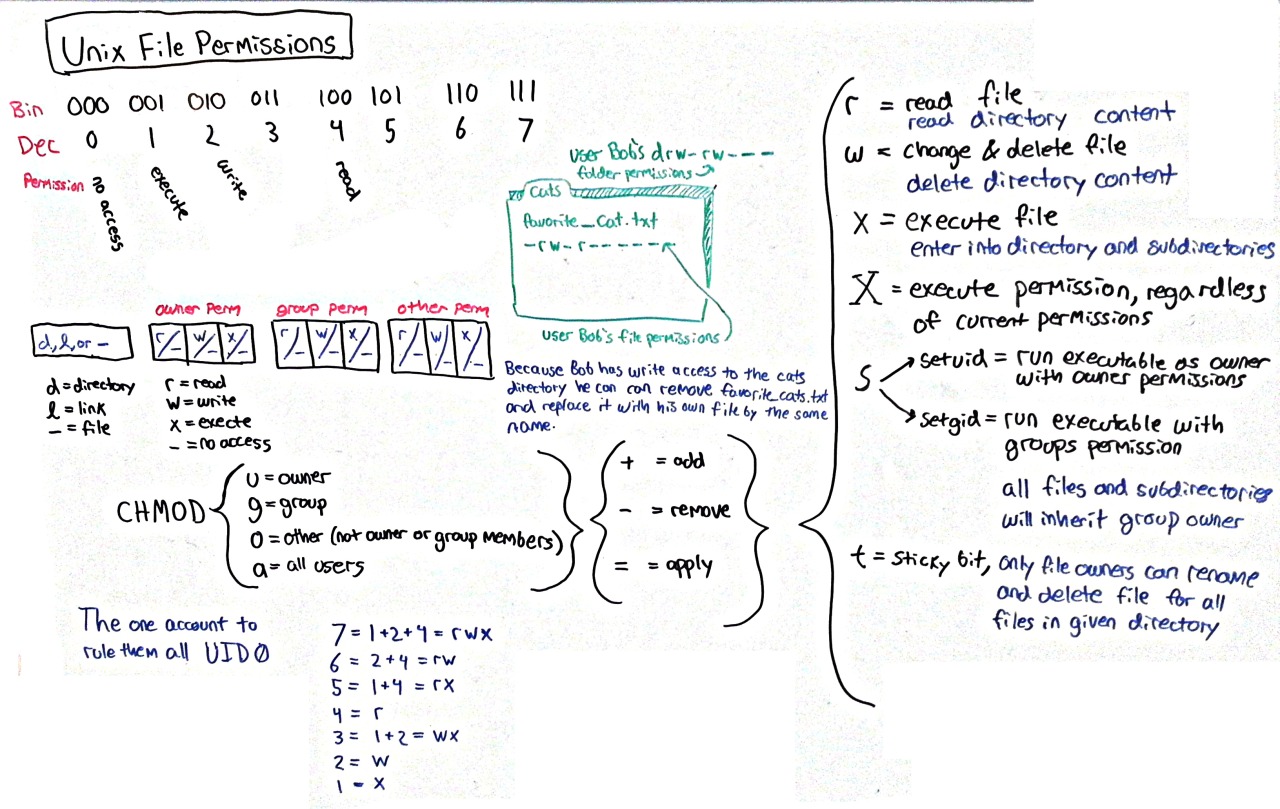 Unix File Permissions
Bin 000 001 010 011 100 101 110 111
Dec 0 1 2 3 4 5 6 7
Permission no access execute write read
user Bob's drw-rw----
folder permissions
cats
favorite_cat.txt
-rw-r------
user Bob's file permissions
owner perm group perm other perm
d, l, or - r/- w/- x/- r/- w/- x/- r/- w/- x/-
d = directory
l = link
- = file
r = read
w = write
x = execte
- = no access
Because Bob has write access to the cats
directory he can can remove favorite_cats.txt
and replace it with his own file by the same
name.
CHMOD
U = owner
g = group
O = other (not owner or group members)
a = all users
+ = add
- = remove
= = apply
r = read file
read directory content
w = change & delete file
delete directory content
x = execute file
enter into directory and subdirectories
X = execute permission, regardless
of current permissions
S
setuid = run executable as owner
with owner permissions
setgid = run executable with
groups permission
all files and subdirectories
will inherit group owner
t = sticky bit, only file owners can rename
and delete file for all
files in given directory
The one account to
rule them all UID0
7 = 1+2+4 = rwx
6 = 2+4 = rw
5 = 1+4 = rx
4 = r
3 = 1+2 = wx
2 = w
1 - x